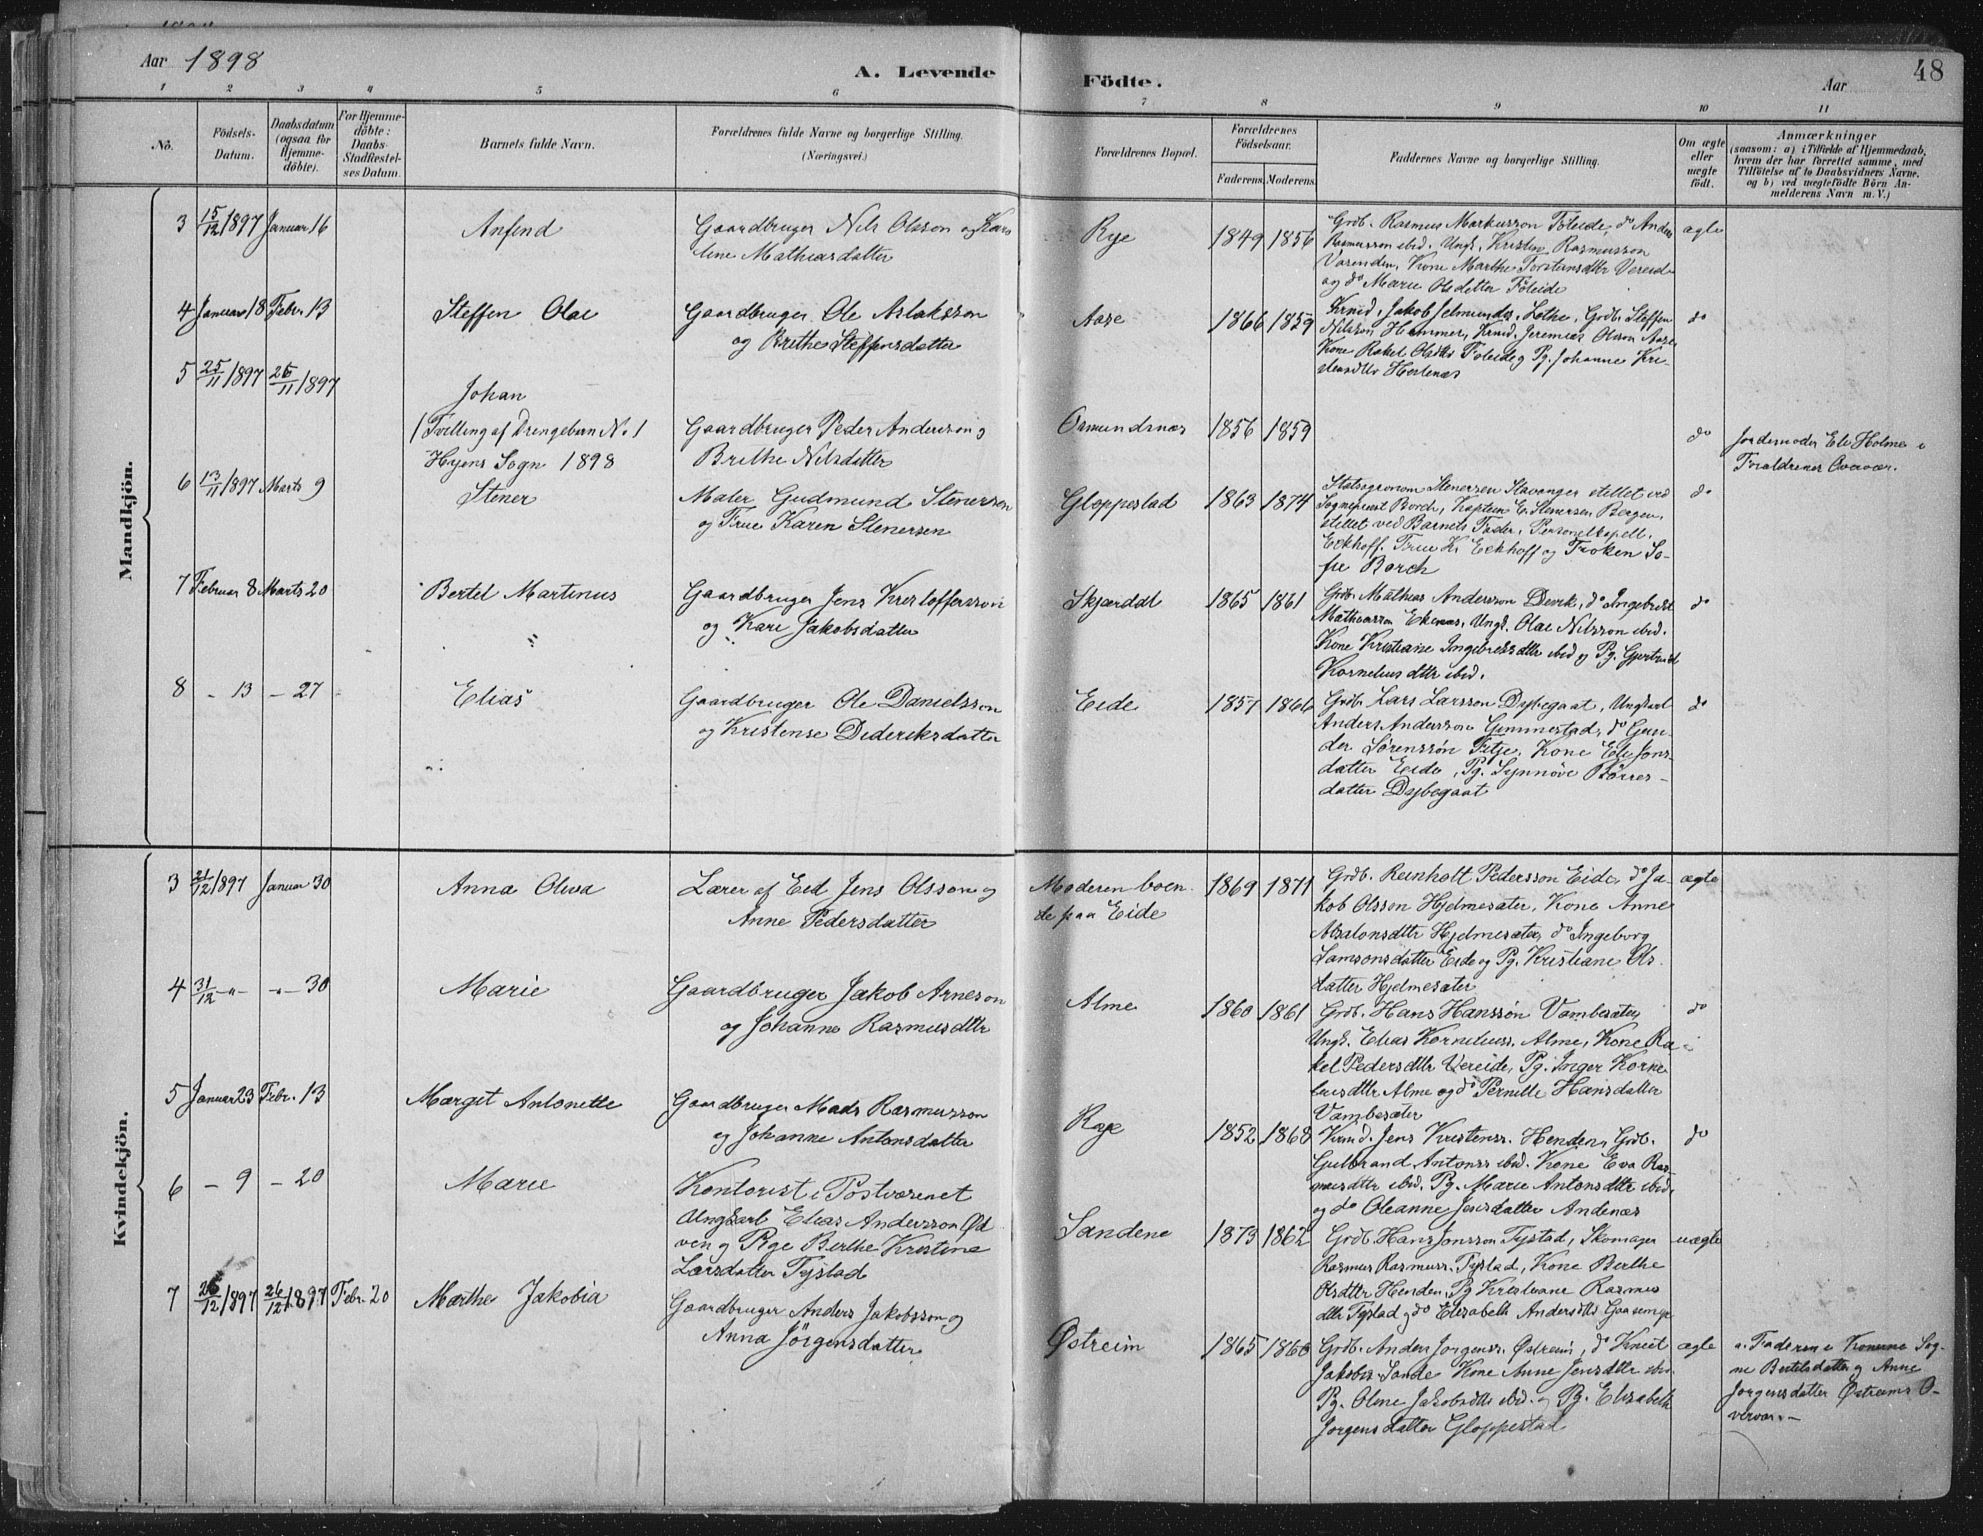 Aar 1898
A. Levende Födte.
Aar
48
1 2 3 4 5 6 7 8 9 10 11
No.
Födsels-Datum.
Daabsdatum (ogsaa for Hjemmedöbte).
For Hjemmedöbte: Daabs-Stadfestelses Datum.
Barnets fulde Navn.
Forældrenes fulde Navne og borgerlige Stilling. (Næringsvei.)
Forældrenes Bopæl.
Forældrenes Födselsaar.
Faderens. Moderens.
Faddernes Navne og borgerlige Stilling.
Om ægte eller uægte födt.
Anmærkninger
(saasom: a) i Tilfælde af Hjemmedaab, hvem der har forrettet samme, med Tilföielse af to Daabsvidners Navne. og b) ved uægtefödte Börn Anmelderens Navn m. V.)
Mandkjön.
3 15/12 1897 Januar 16 Anfind
Gaardbruger Nils Olsson og Karoline Mathiasdatter
Rye 1849 1856
Grdb. Rasmus Markusson Föleide, do Anders
Rasmusson ibid. Ungk. Kristen Rasmusson
Varenden, Kone Marthe Torstensdttr Vereide
og do Marie Olsdatter Föleide
ægte
4 Januar 18 Febr. 13 Steffen Olai
Gaardbruger Ole Aslaksson
og Brithe Steffensdatter
Aase 1866 1859
Krmd. Jakob Lothe, Grdb. Steffen
Nilsson Hammer, Krmd. Jeremias Olsson Aase
Kone Rakel Föleide og Pg. Johanne Kri-
do
5 25/11 1897 26/11 1897
Johan
(Tvilling af Drengebarn No. 1
Hyens Sogn 1898
Gaardbruger Peder Andersson og
Brithe Nilsdatter
Osmundsnæs 1856 1859
do
Jordemoder Eli Holme i
Forældrenes Overvær.
6 13/11 1897 Marts 9 Stener
Maler Gudmund Stenersen
og Frue Karen Stenersen
Gloppestad 1863 1874
Statsagronom Stenersen Stavanger stillet ved
Sognepræst Borch, Kaptein E. Stenersen Bergen,
stillet ved Barnets Fader, Personelkapell.
Eckhoff, Frue K. Eckhoff og Frøken So-
fie Borch
do
7 Februar 8 Marts 20 Bertel Martinus
Gaardbruger Jens Kristoffersson
og Kari Jakobsdatter
Skjærdal 1865 1861
Grdb. Mathias Andersson Devik, do Ingebrikt
Mathiasson Ekenæs, Ungk. Olai Nilsson ibid.
Kone Kristiane Ingebriktsdttr ibid og Pg. Gjertrud
Korneliusdttr ibid.
do
8 - 13 - 27 Elias
Gaardbruger Ole Danielsson
og Kristense Dideriksdatter
Eide 1857 1866
Grdb. Lars Larsson Dybegaat, Ungkarl
Anders Andersson Gimmestad, do Gun-
der Sörenssön Fitje, Kone Eli Jons-
datter Eide, Pg. Synnöve Börres-
datter Dybegaat
do
Kvindekjön.
3 21/12 1897 Januar 30 Anna Oliva
Lærer af Eid Jens Olsson og
Anne Pedersdatter
Moderen boen-
de paa Eide 1869 1871
Grdb. Reinholt Pedersson Eide, do Ja-
kob Olsson Hjelmesæter, Kone Anne
Absalonsdttr Hjelmesæter, do Ingeborg
Samsonsdatter Eide og Pg. Kristiane Ols-
datter Hjelmesæter
ægte
4 31/12 -"- -"- 30 Marie
Gaardbruger Jakob Arneson
og Johanne Rasmusdttr
Alme 1860 1861
Grdb. Hans Hanssön Vambesæter,
Ungk. Elias Korneliuss. Alme, Kone Ra-
kel Pedersdttr Vereide, Pg. Inger Korne-
liusdttr Alme og do Pernille Hansdatter
Vambesæter
do
5 Januar 23 Febr. 13 Marget Antonette
Gaardbruger Mads Rasmusson
og Johanne Antonsdatter
Rye 1852 1868
Krmd. Jens Kristenss. Henden, Grdb.
Gulbrand Antonss ibid. Kone Eva Ras-
musdttr ibid. Pg. Marie Antonsdttr ibid.
og do Oleanne Jensdatter Andenæs
do
6 - 9 - 20 Marie
Kontorist i Postvæsenet
Ungkarl Elias Andersson Öd-
ven og Pige Berthe Kristine
Larsdatter Tystad
Sandene 1873 1862
Grdb. Hans Jonsson Tystad, Skomager
Rasmus Rasmuss. Tystad, Kone Berthe
Olsdttr Henden, Pg Kristiane Rasmus
dttr Tystad og do Elisabeth Andersdttr
uægte
7 26/12 1897 26/12 1897 Febr. 20 Marthe Jakobia
Gaardbruger Anders Jakobsson og
Anna Jörgensdatter
Østreim 1865 1860
Grdb. Anders Jorgenss. Østreim, do Knut
Jakobss Sande Kone Anne Jensdttr ibid
Pg. Oline Jakobsdttr ibid. og Pg. Elisabeth
Jorgensdatter Gloppestad
ægte
a. Faderen i Konerne Sig-
ne Bertelsdatter og Anne
Jorgensdatter Østreims O-
vervær. -